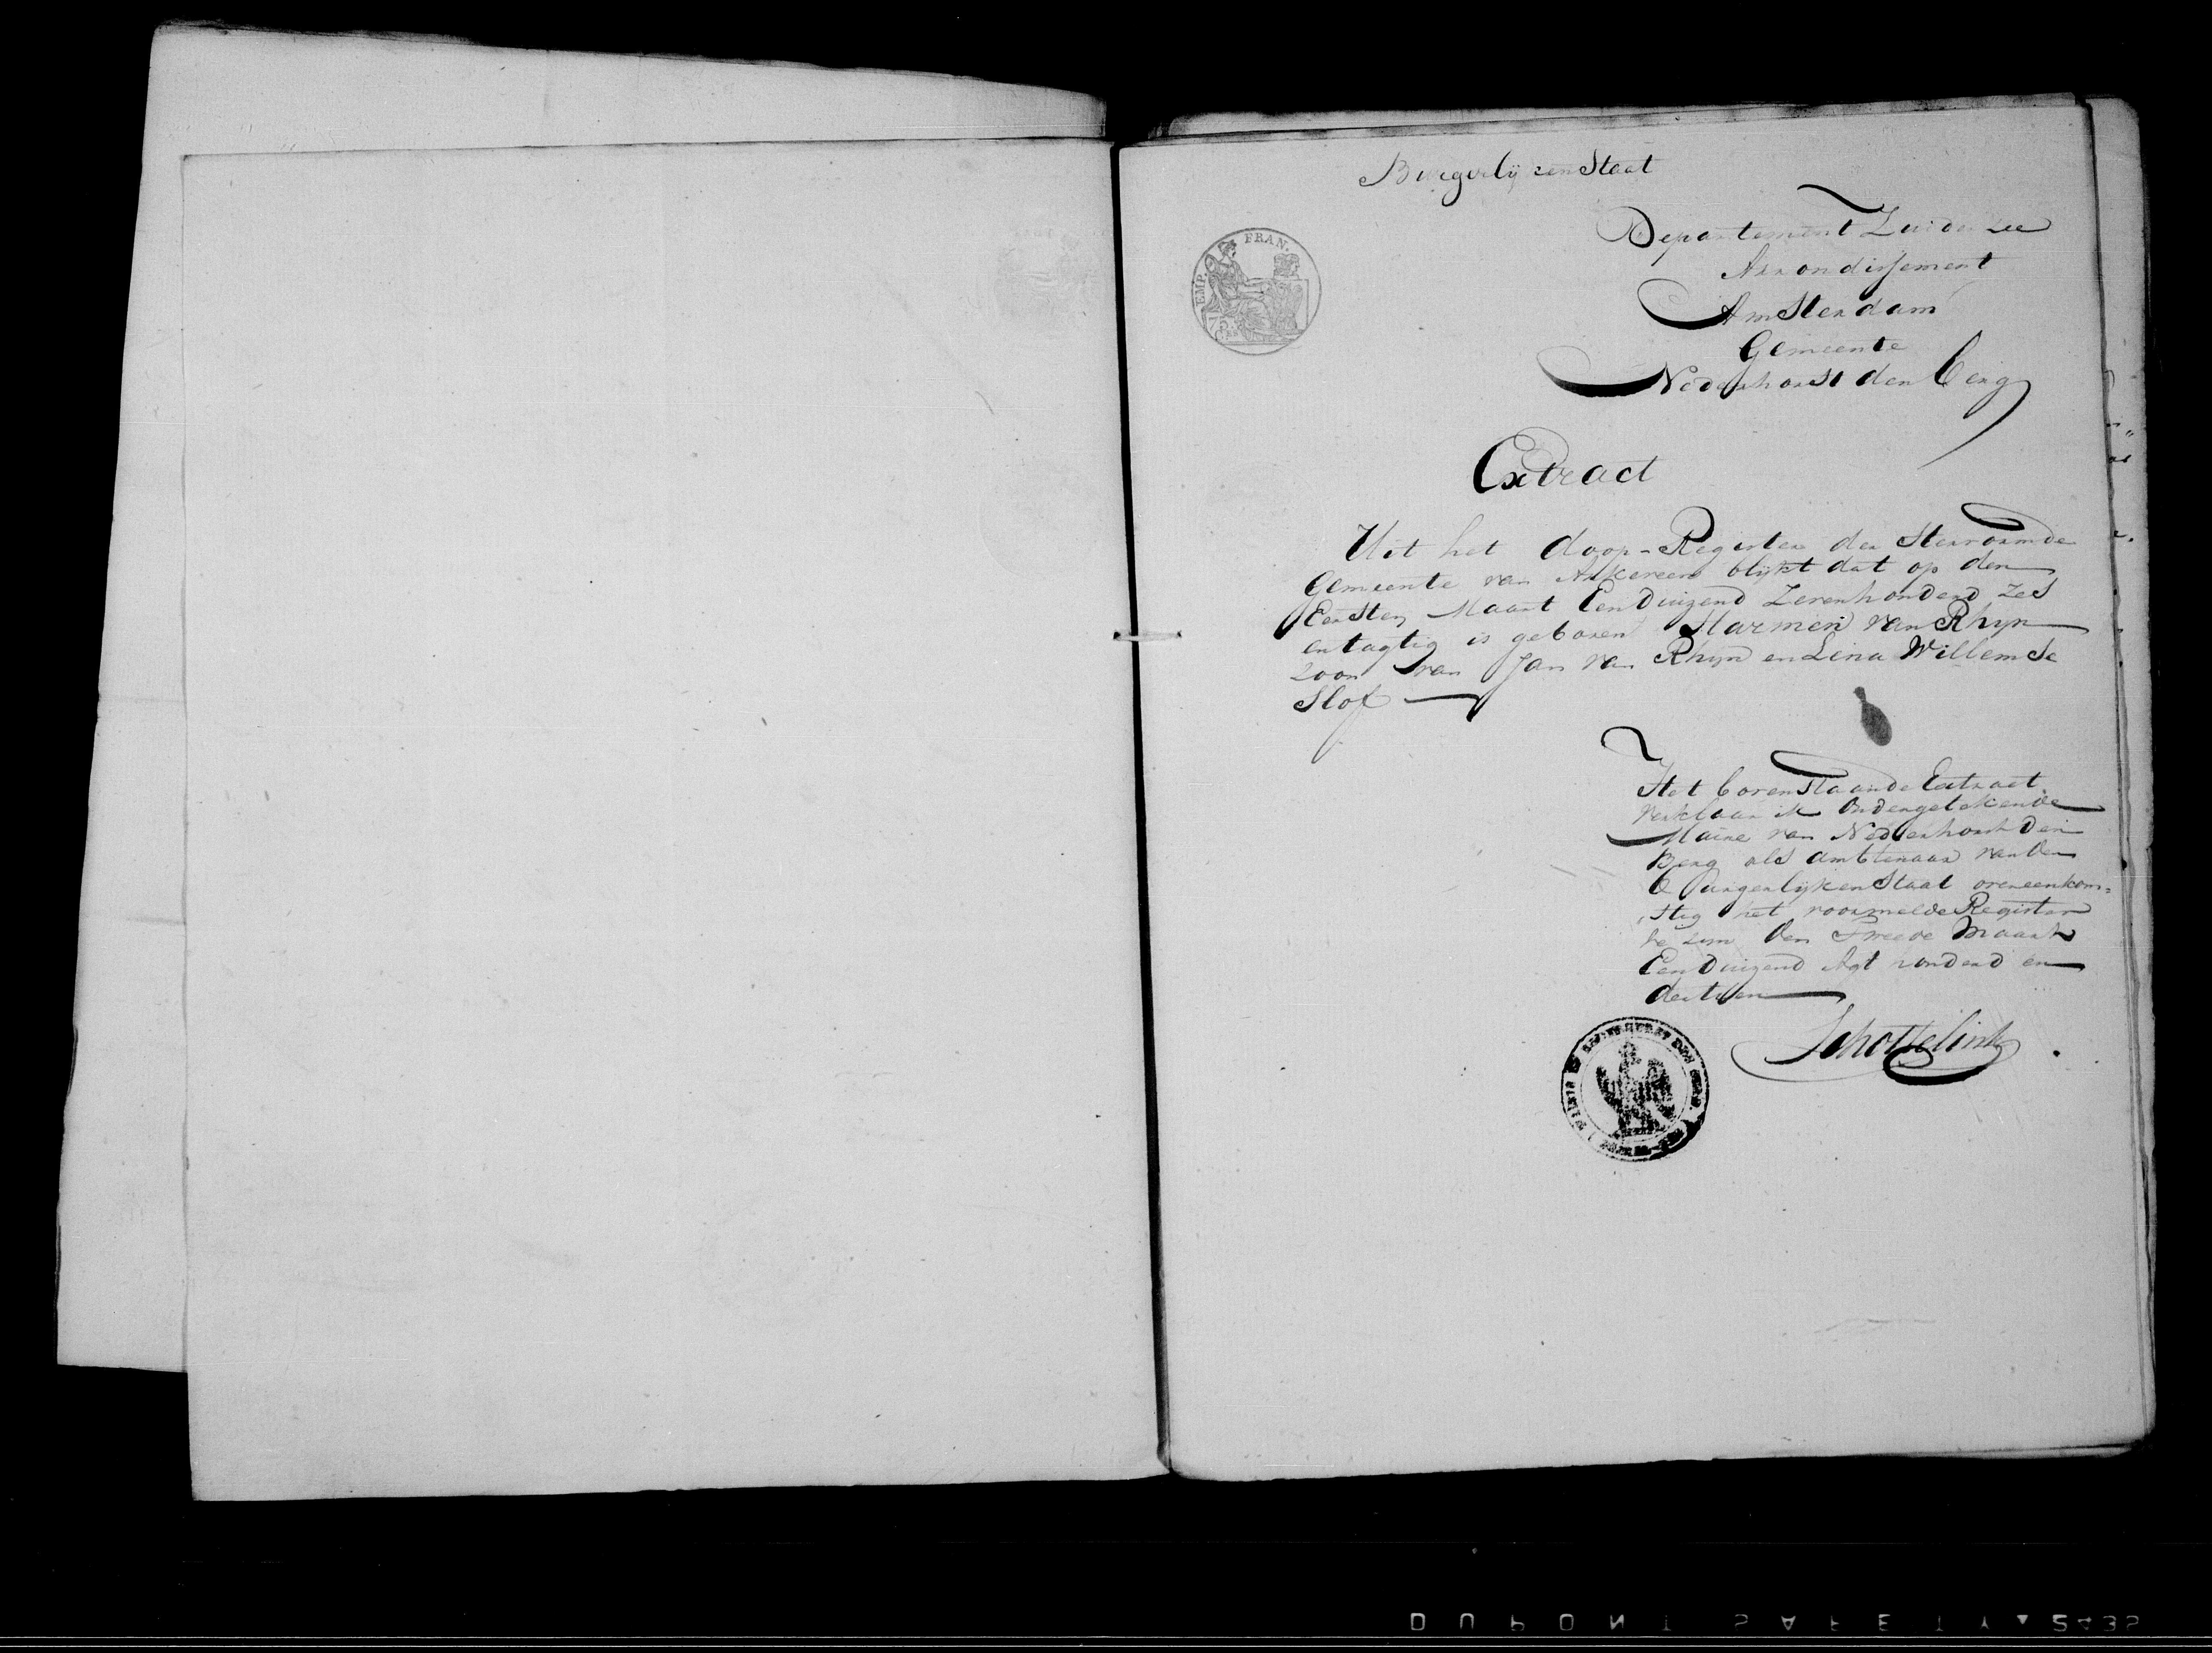 Burgerlyken Staat
EMP. FRAN.
Departement Zuider zee
Arrondissement
Amsterdam
Gemeente
Nederhorst den berg
Extract
Uit het doop-Register der Herformde
Gemeente van Ankeveen blijkt dat op den
Eersten Maart Eenduizend Zevenhonderd zes
entagtig is geboren Harmen van Rhyn
zoon van Jan van Rhyn en Lena Willemse
Slof
Het bovenstaande Extract
verklaar ik Ondergetekende
Maire van Nederhorst den
Berg als ambtenaar van den
Burgerlijken Staat overeenkom=
stig het voormelde Register
te zyn den Tweede Maart
Eenduizend Agt honderd en
dertien
Schottelink
DUPONT SAFETY 2435